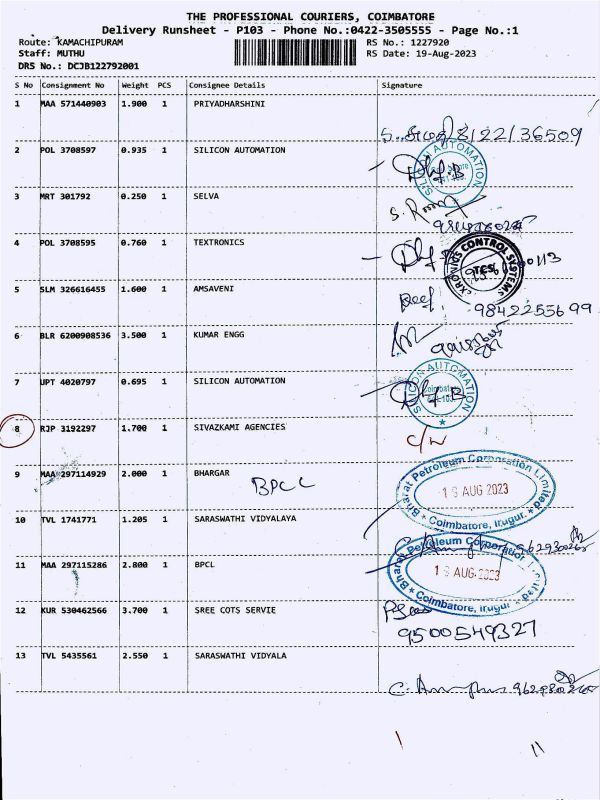 THE PROFESSIONAL COURIERS, COIMBATORE
Delivery Runsheet - P103 - Phone No.:0422-3505555 - Page No.:1
Route: KAMACHIPURAM RS No.: 1227920
Staff: MUTHU RS Date: 19-Aug-2023
DRS No.: DCJB122792001
S No Consignment No Weight PCS Consignee Details Signature
1 MAA 571440903 1.900 1 PRIYADHARSHINI
8122136509
2 POL 3708597 0.935 1 SILICON AUTOMATION
SILICON AUTOMATION
3 MRT 301792 0.250 1 SELVA
4 POL 3708595 0.760 1 TEXTRONICS
CONTROL SYSTEMS
5 SLM 326616455 1.600 1 AMSAVENI
9842255699
6 BLR 6200908536 3.500 1 KUMAR ENGG
7 UPT 4020797 0.695 1 SILICON AUTOMATION
SILICON AUTOMATION
8 RJP 3192297 1.700 1 SIVAZKAMI AGENCIES
9 MAA 297114929 2.000 1 BHARGAR
BPCL
Bharat Petroleum Corporation Limited
19 AUG 2023
Coimbatore, Irugur.
10 TVL 1741771 1.205 1 SARASWATHI VIDYALAYA
11 MAA 297115286 2.800 1 BPCL
Bharat Petroleum Corporation Limited
19 AUG 2023
Coimbatore, Irugur.
12 KUR 530462566 3.700 1 SREE COTS SERVIE
9500549327
13 TVL 5435561 2.550 1 SARASWATHI VIDYALA